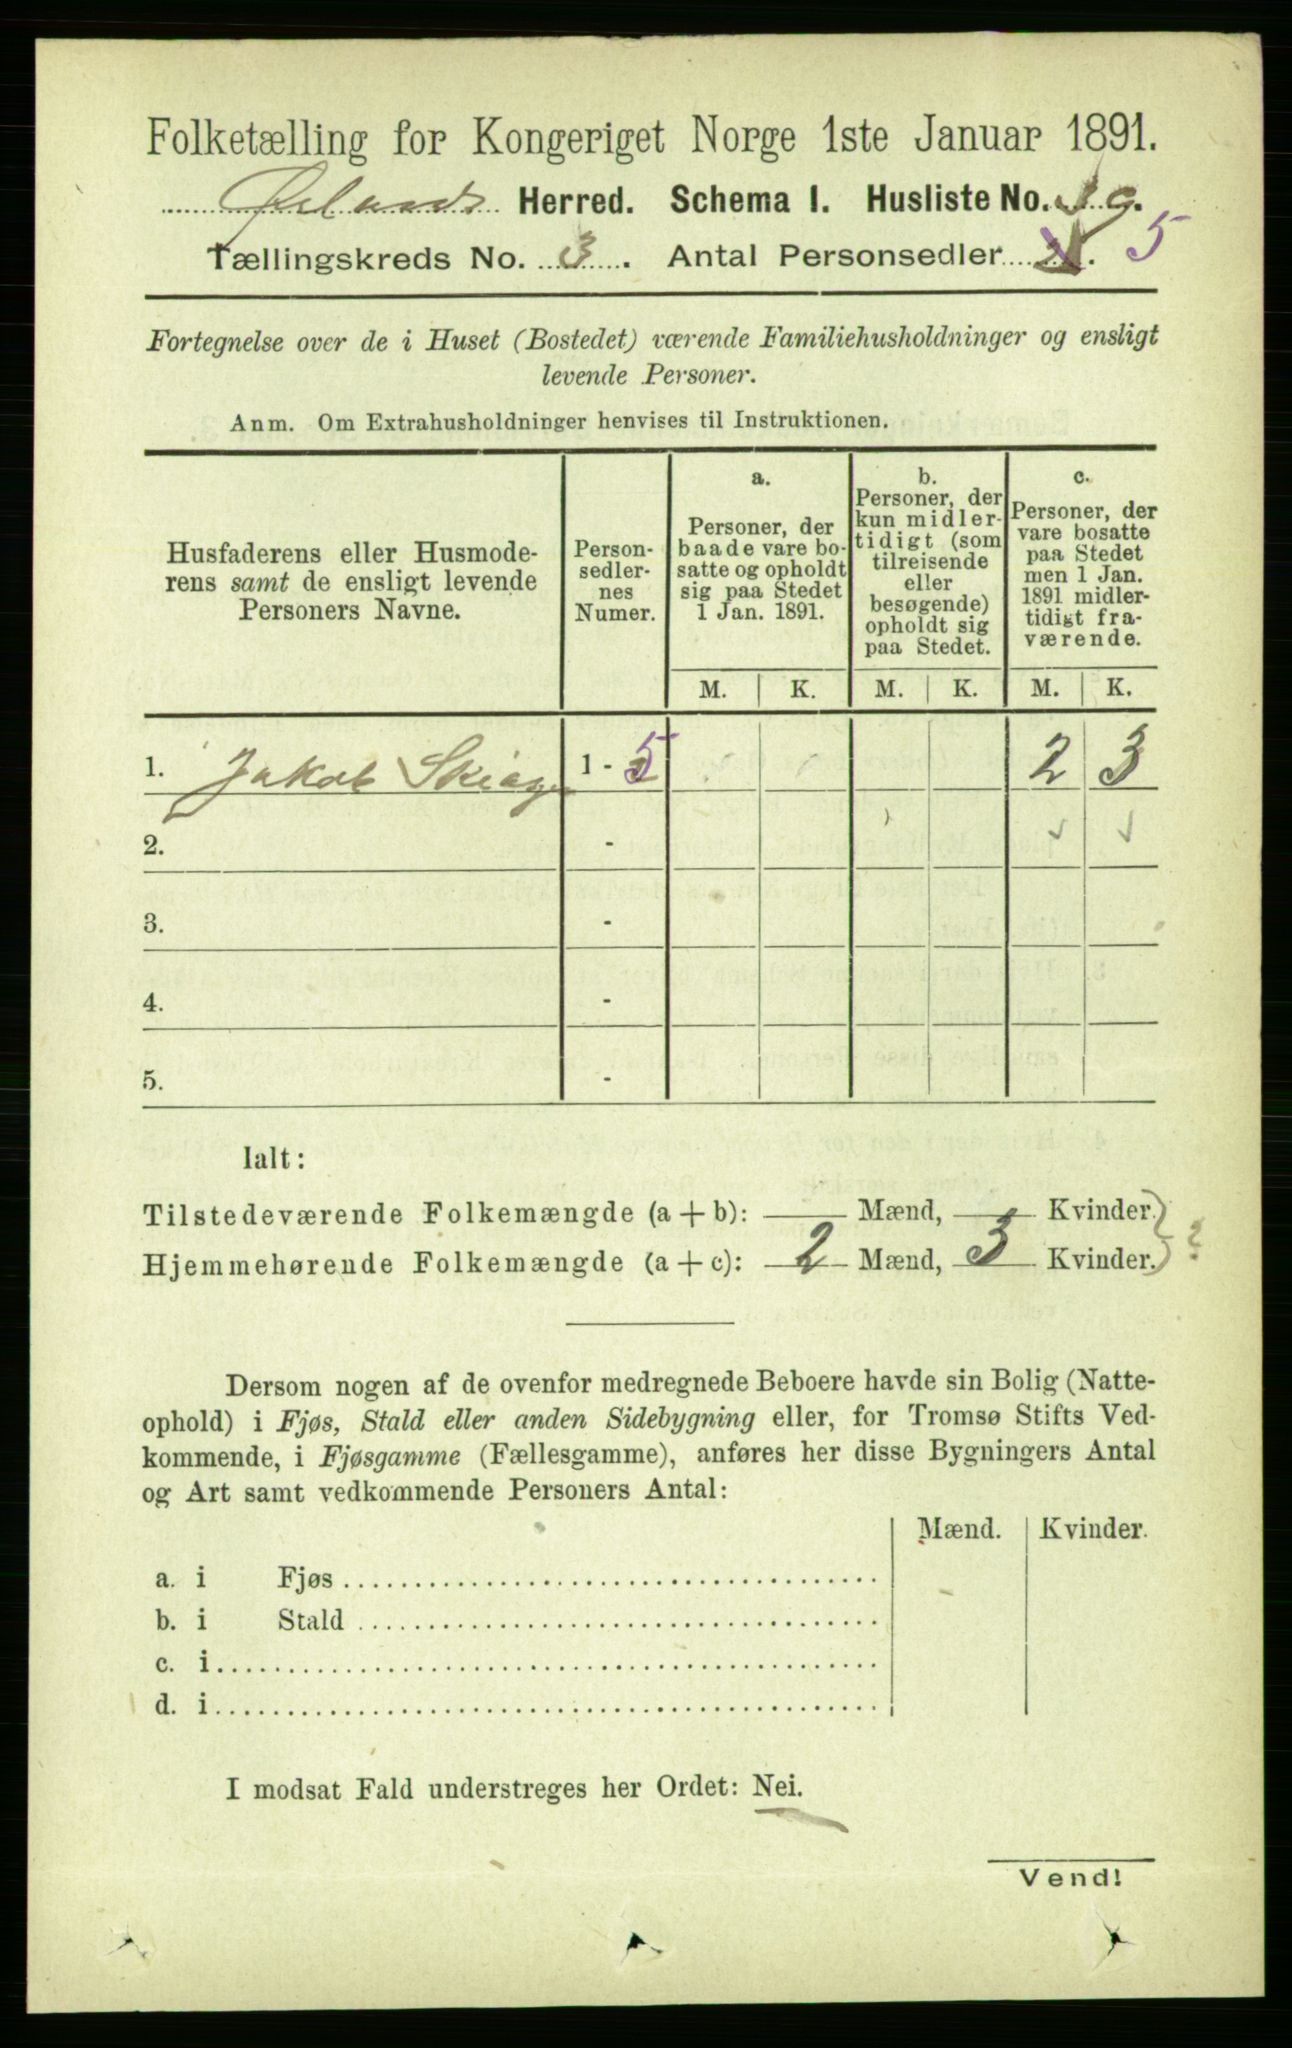 Folketælling for Kongeriget Norge 1ste Januar 1891.
Ørlands Herred. Schema I. Husliste No. 59.
Tællingskreds No. 3. Antal Personsedler 5
Fortegnelse over de i Huset (Bostedet) værende Familiehusholdninger og ensligt
levende Personer.
Anm. Om Extrahusholdninger henvises til Instruktionen.
Husfaderens eller Husmode-
rens samt de ensligt levende
Personers Navne.
Person-
sedler-
nes
Numer.
a.
Personer, der
baade vare bo-
satte og opholdt
sig paa Stedet
1 Jan. 1891.
b.
Personer, der
kun midler-
tidigt (som
tilreisende
eller
besøgende)
opholdt sig
paa Stedet.
c.
Personer, der
vare bosatte
paa Stedet
men 1 Jan.
1891 midler-
tidigt fra-
værende.
M. K. M. K. M. K.
1. Jakob 1 - 5 2 3
2. -
3. -
4. -
5. -
Ialt:
Tilstedeværende Folkemængde (a + b): — Mænd, — Kvinder.
Hjemmehørende Folkemængde (a + c): 2 Mænd, 3 Kvinder. ?
Dersom nogen af de ovenfor medregnede Beboere havde sin Bolig (Natte-
ophold) i Fjøs, Stald eller anden Sidebygning eller, for Tromsø Stifts Ved-
kommende, i Fjøsgamme (Fællesgamme), anføres her disse Bygningers Antal
og Art samt vedkommende Personers Antal:
Mænd. Kvinder.
a. i Fjøs
b. i Stald
c. i
d. i
I modsat Fald understreges her Ordet: Nei.
Vend!